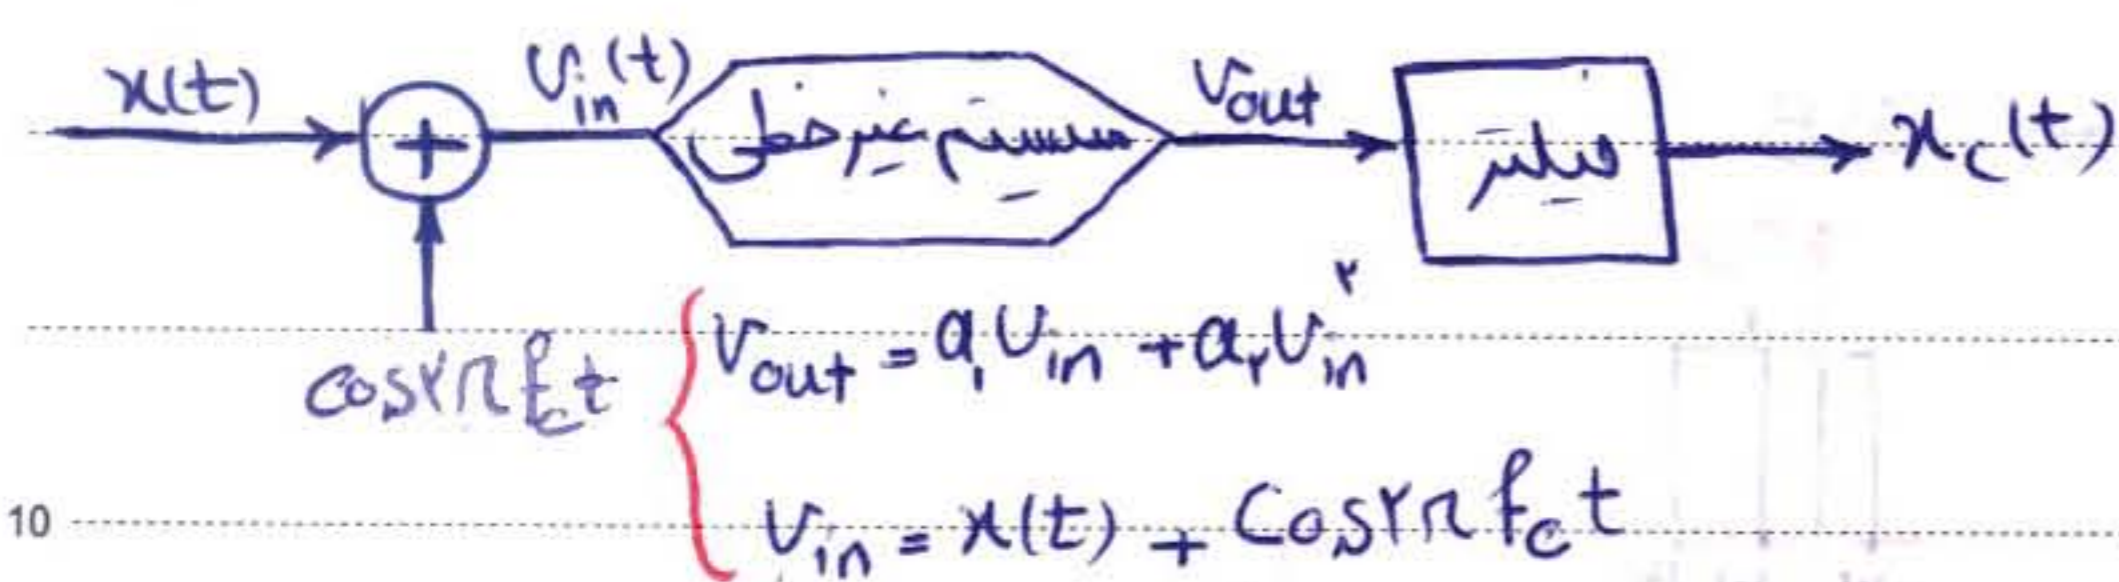 x(t) V_in(t) سیستم غیر خطی V_out فیلتر x_c(t)
cos۲π f_c t
V_out = a_۱ V_in + a_۲ V_in^۲
10 V_in = x(t) + Cos۲π f_c t